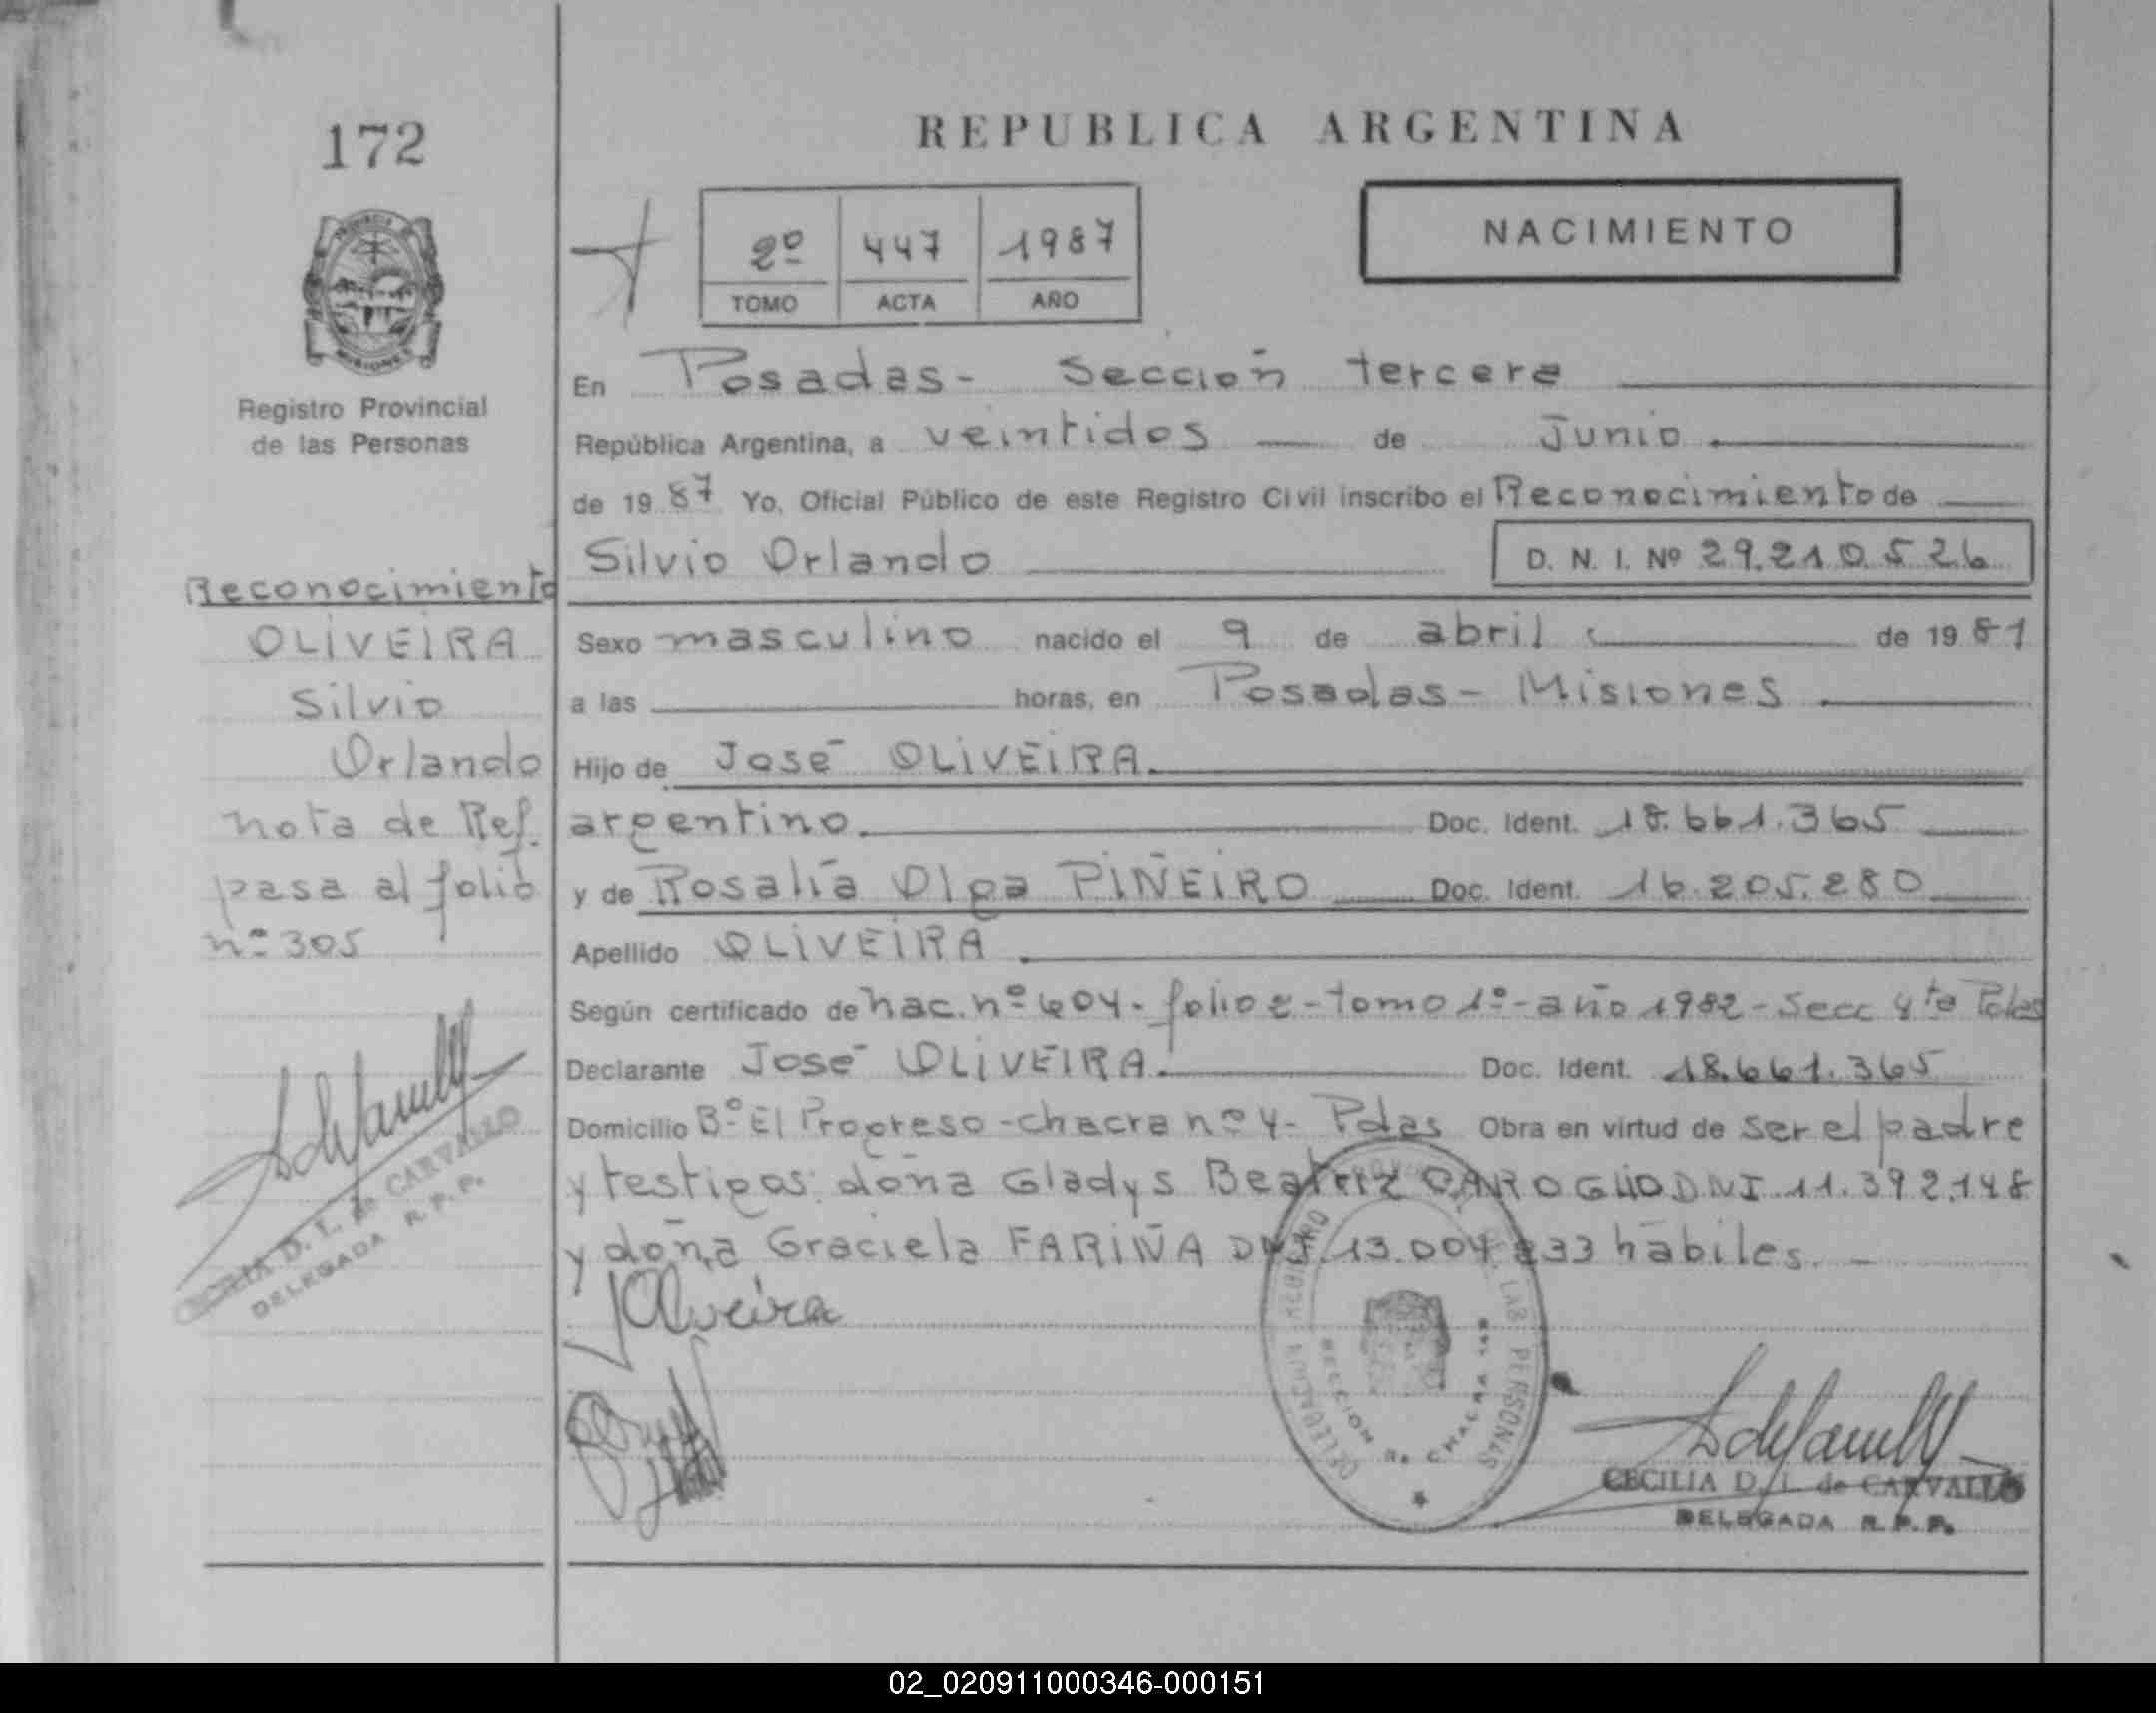 172
REPUBLICA ARGENTINA
NACIMIENTO
2º 447 1987
TOMO ACTA AÑO
Registro Provincial
de las Personas
En Posadas- Sección tercera
República Argentina, a veintidos de Junio
de 1987 Yo, Oficial Público de este Registro Civil inscribo el Reconocimiento de
Silvio Orlando D. N. I. Nº 29.210.526
Sexo masculino nacido el 9 de abril de 1981
a las horas, en Posadas- Misiones
Hijo de José OLIVEIRA.
argentino. Doc. Ident. 18.661.365
y de Rosalía Olga PIÑEIRO Doc. Ident. 16.205.280
Apellido OLIVEIRA
Según certificado de nac. nº 604- folio 2- tomo 1º- año 1982- Secc 4ta Pdas
Declarante José OLIVEIRA. Doc. Ident. 18.661.365
Domicilio Bº El Progreso -chacra nº 4- Pdas Obra en virtud de ser el padre
y testigos: doña Gladys Beatriz DNI 11.392.148
y doña Graciela FARIÑA DNI. 13.004.233 hábiles. -
Reconocimiento
OLIVEIRA
Silvio
Orlando
nota de Ref.
pasa al folio
nº 305
CECILIA D. I. de CARVALLO
DELEGADA R. P. P.
JOliveira
LAS PERSONAS
SECCION
CECILIA D. I. de CARVALLO
DELEGADA R. P. P.
02_020911000346-000151